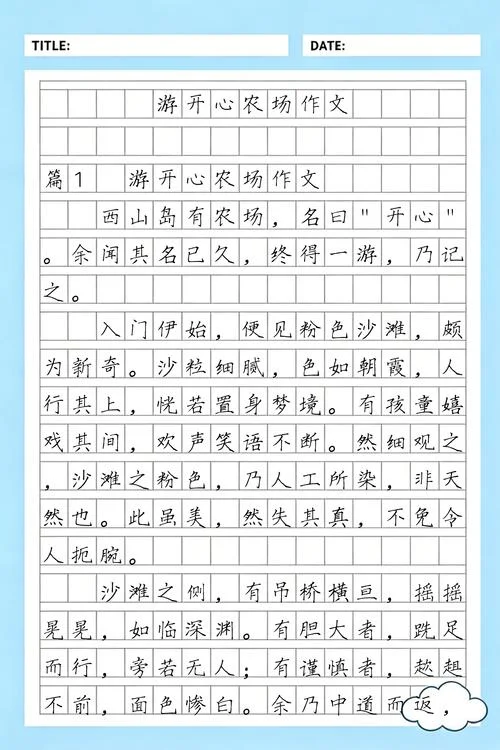 TITLE:
DATE:
游开心农场作文
篇1 游开心农场作文
西山岛有农场，名曰"开心"
。余闻其名已久，终得一游，乃记
之。
入门伊始，便见粉色沙滩，颇
为新奇。沙粒细腻，色如朝霞，人
行其上，恍若置身梦境。有孩童嬉
戏其间，欢声笑语不断。然细观之
，沙滩之粉色，乃人工所染，非天
然也。此虽美，然失其真，不免令
人扼腕。
沙滩之侧，有吊桥横亘，摇摇
晃晃，如临深渊。有胆大者，跣足
而行，旁若无人；有谨慎者，趑趄
不前，面色惨白。余乃中道而返，